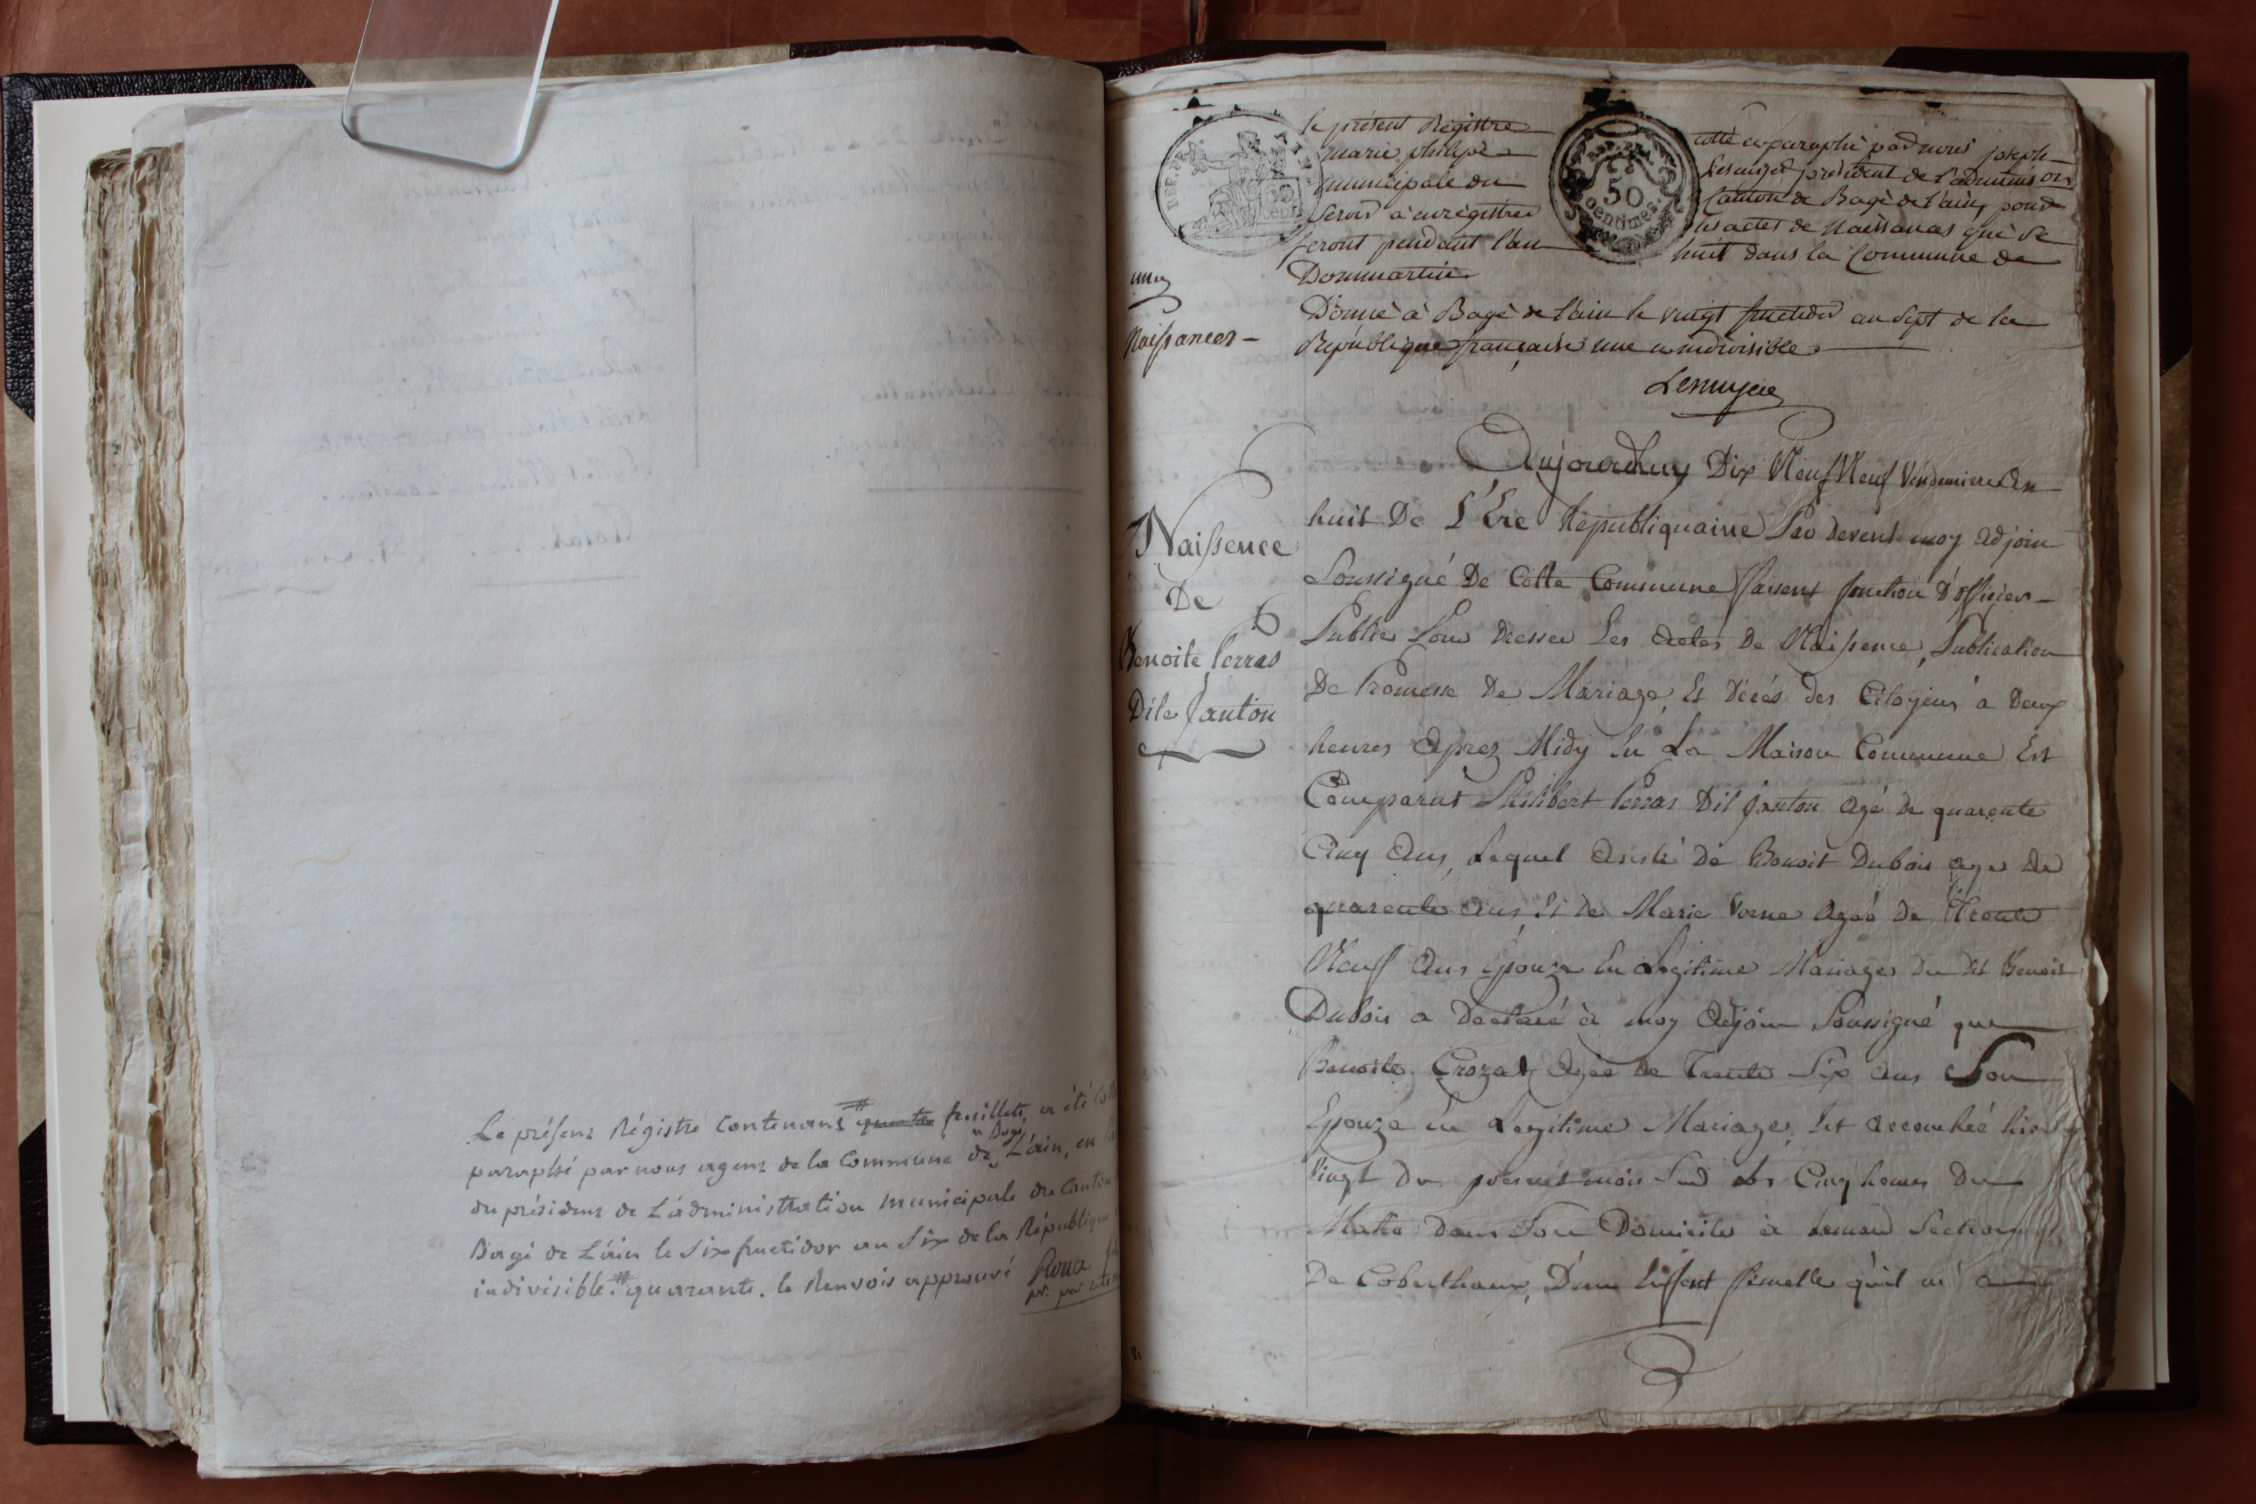 Le présent Régistre contenant # quarante feuillets, a été
paraphé par nous agent de la commune de Bagé L'ain, en
du président de L'administration municipale du canton
Bagé de L'ain le six fructidor an six de la République
indivisible. # quarante. le Renvois approuvé
le présent Régistre cotté et paraphé par nous joseph
marie philipe Lesmyer président de l'adminis on
municipale du canton de Bagé de l'ain, pour
servir à enrégistrer les actes de naissances qui se
feront pendant l'an huit dans la Commune de
Dommartin
Donné à Bagé de l'ain le vingt fructidor an sept de la
République française une et indivisible
50
centimes
Naissances
Naissence
De
Benoite perras
Dile janton
Aujourdhuy Dix Neuf Neuf Vendemiere An
huit De L'Ere Republiquaine Par devent moy adjoin
Soussigné De Cette Commune faisent fonction D'offisier
Public Pour dresser Les Actes De Naissence, Publication
De Promesse De Mariage, Et Décés des Citoyens à Deux
heures Aprez Midy En La Maison Commune Est
Comparut Philibert Perras Dit janton Agé de quarente
Cinq Ans, Lequel Asisté dé Benoit Dubois age de
quarente Ans, Et de Marie Vorne Agéé De Trente
Neuf Ans Epouze En Legitime Mariages Du dit Benoit
Dubois a Declaré à moy Adjoin Soussigné que
Benoite Crozat Agée De Trente Six Ans Son
Epouze en Legitime Mariage, Est accouchéé hier
Vingt Du presnt mois Sur les Cinq heures Du
Matin Dans Son Domicile à Section
De Coberthoux, D'une Enffent femelle qu'il m'a